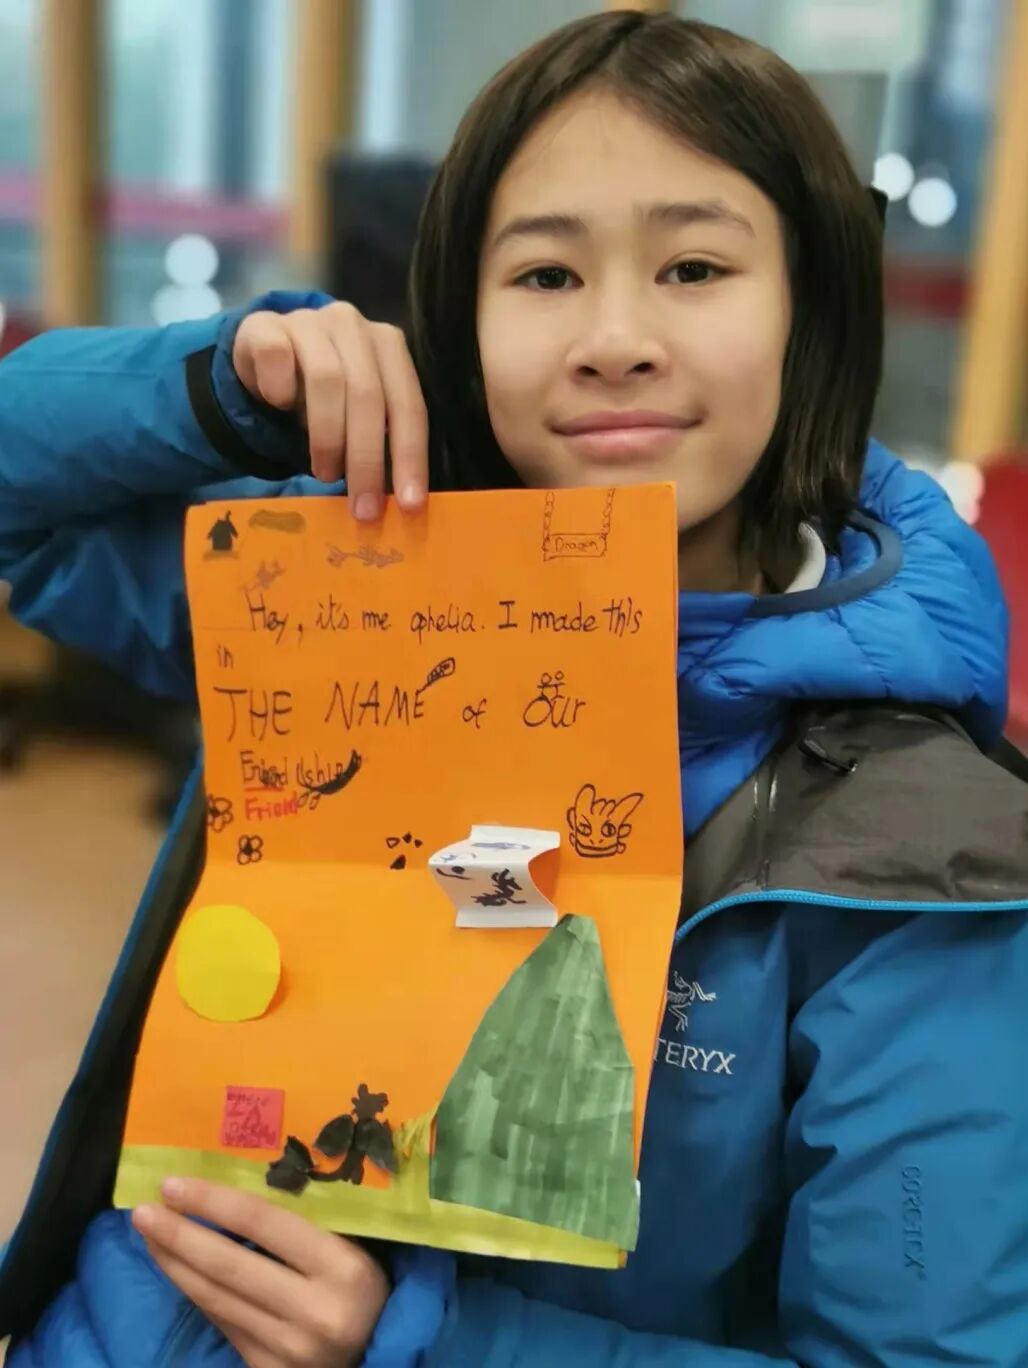 Dragon
Hey, it's me ophelia. I made this
in
THE NAME of our
Friend
TERYX
GORE-TEX